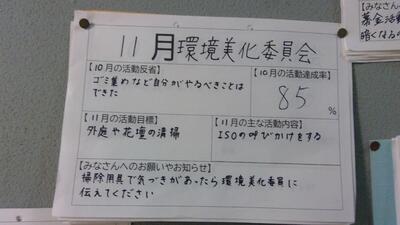 11月環境美化委員会
【10月の活動反省】
ゴミ集めなど自分がやるべきことは
できた
【10月の活動達成率】
85%
【11月の活動目標】
外庭や花壇の清掃
【11月の主な活動内容】
ISOの呼びかけをする
【みなさんへのお願いやお知らせ】
掃除用具で気づきがあったら環境美化委員に
伝えてください
【みなさんへ
募金活動
暗くなるの